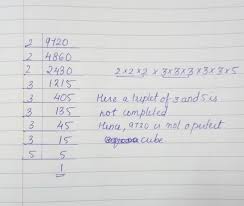 2 | 9720
2 | 4860
2 | 2430
3 | 1215
3 | 405
3 | 135
3 | 45
3 | 15
5 | 5
1
2×2×2 × 3×3×3×3×3×5
Here a triplet of 3 and 5 is
not completed
Hence, 9720 is not a perfect
cube